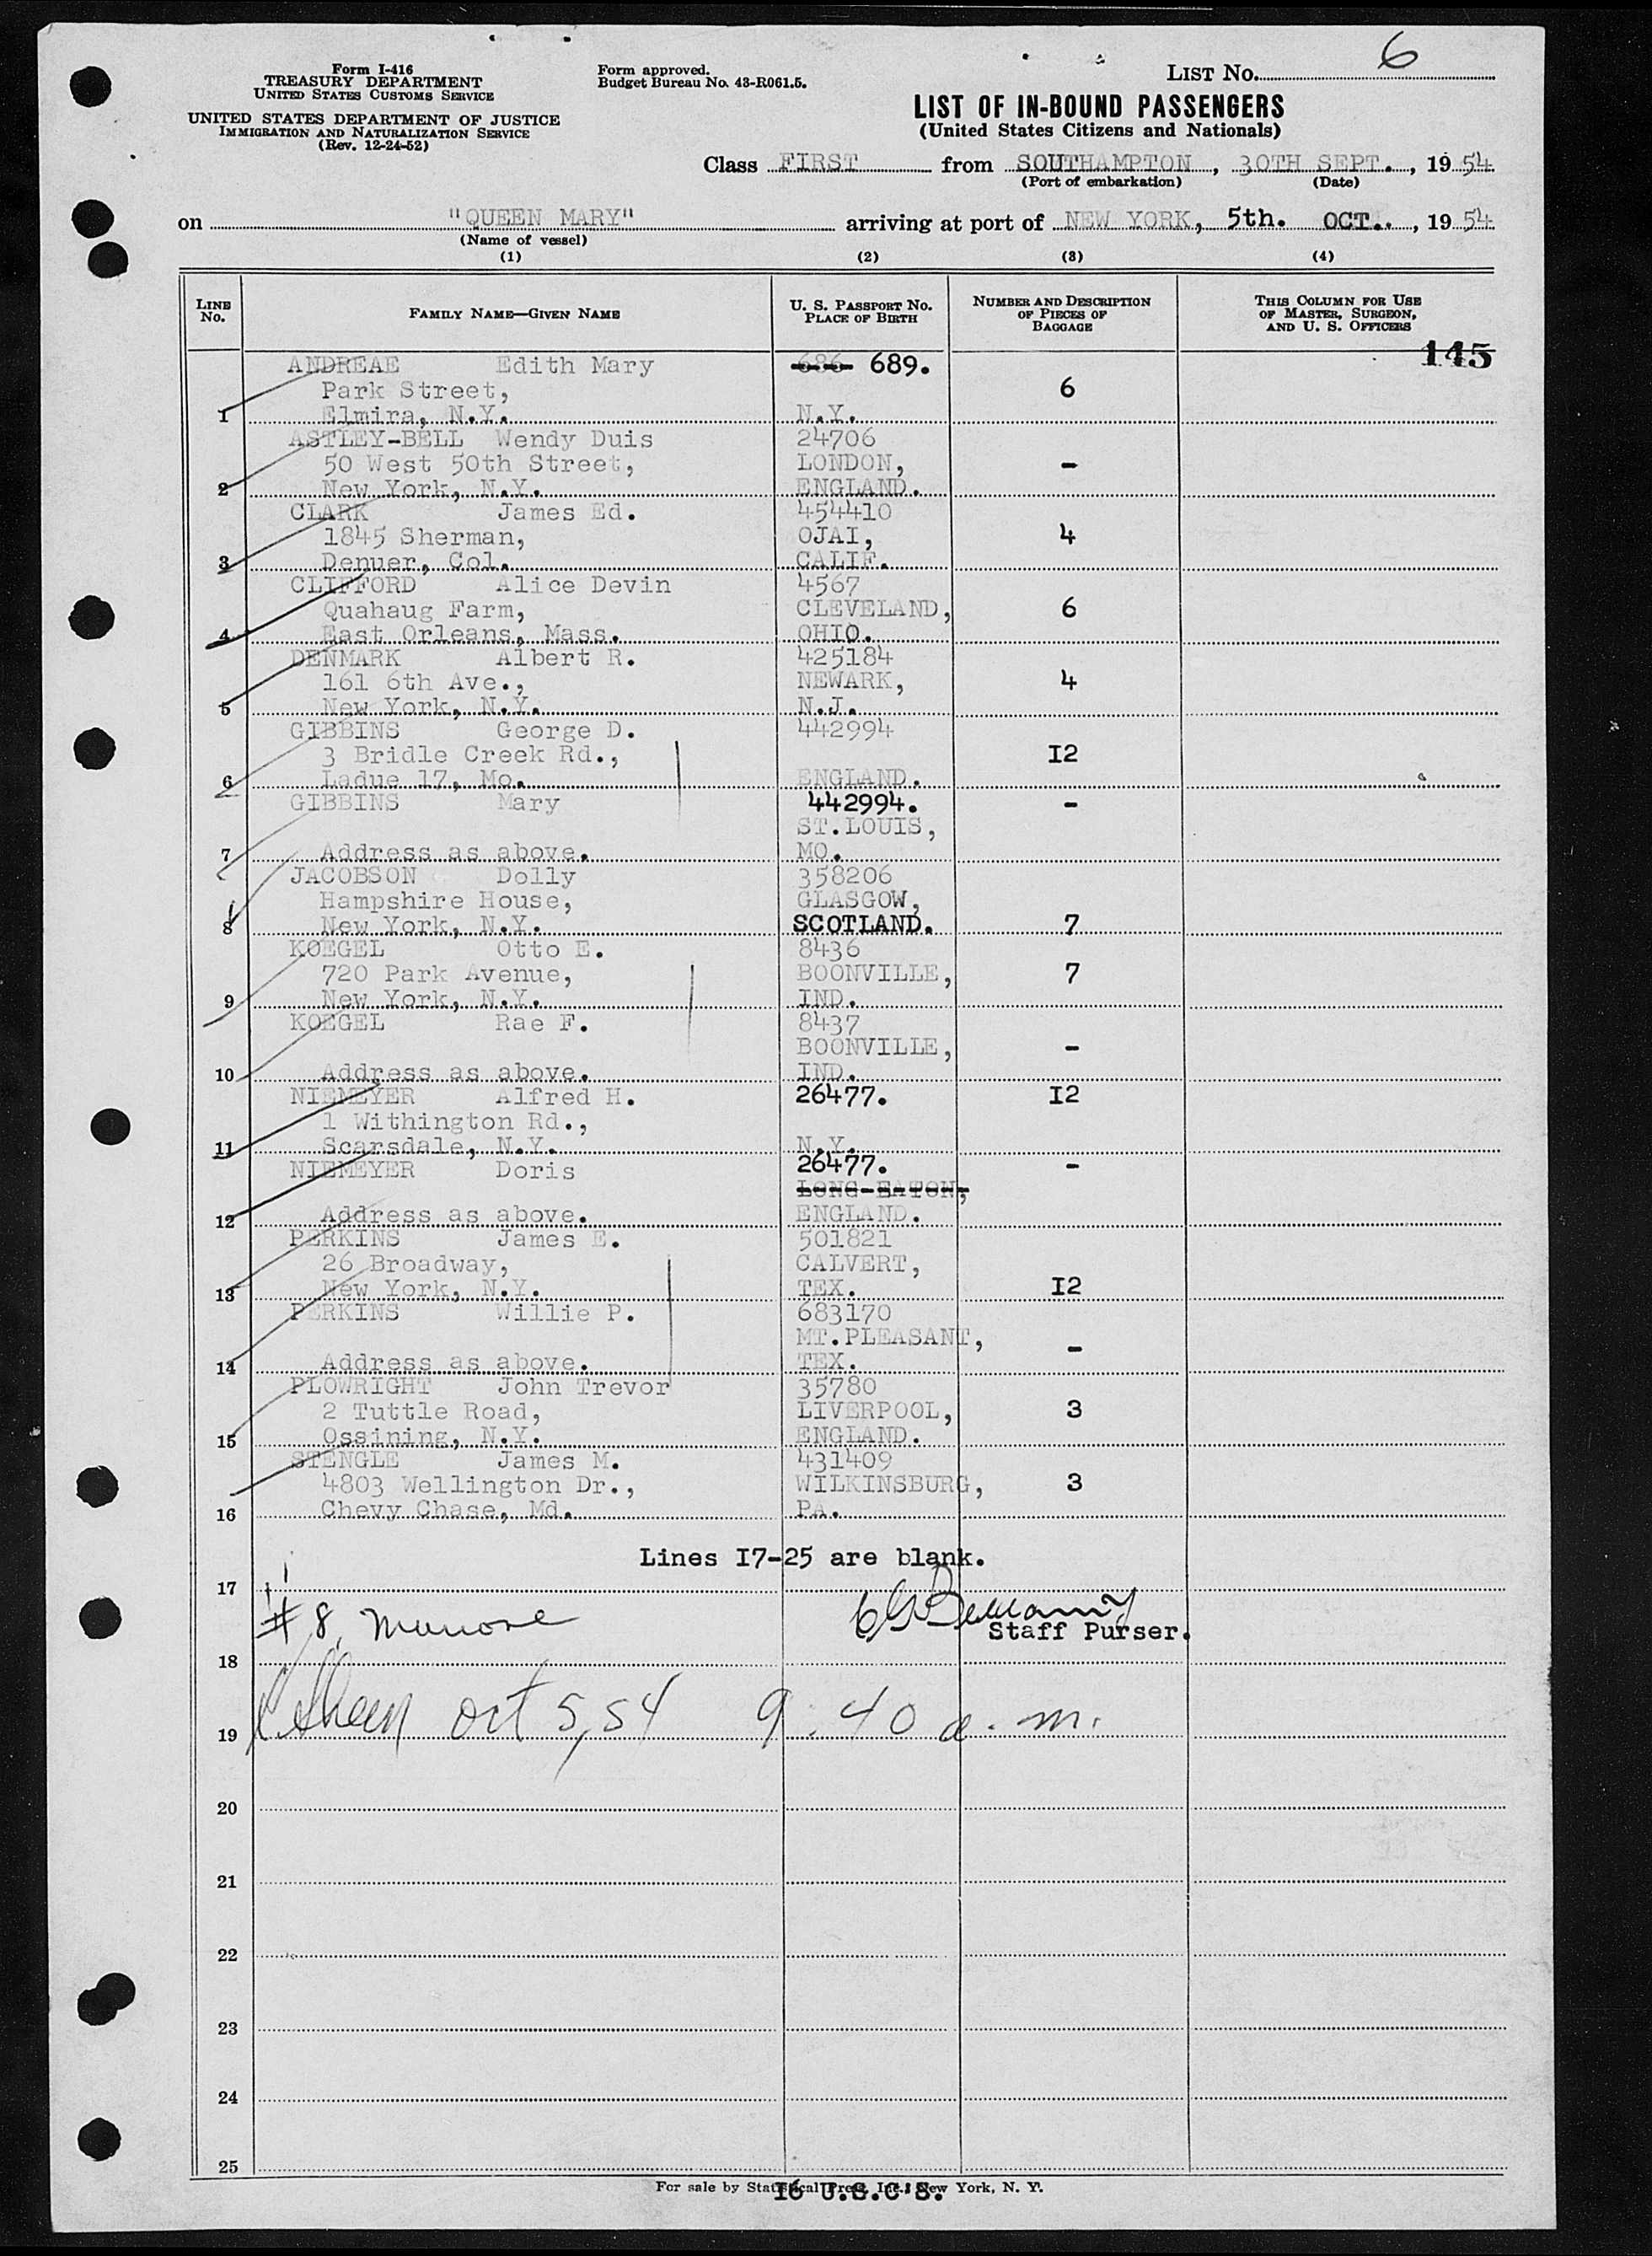 Form I-416
TREASURY DEPARTMENT
UNITED STATES CUSTOMS SERVICE
UNITED STATES DEPARTMENT OF JUSTICE
IMMIGRATION AND NATURALIZATION SERVICE
(Rev. 12-24-52)
Form approved.
Budget Bureau No. 43-R061.5.
LIST No. 6
LIST OF IN-BOUND PASSENGERS
(United States Citizens and Nationals)
Class FIRST from SOUTHAMPTON, 30TH SEPT., 1954
(Port of embarkation) (Date)
on "QUEEN MARY" arriving at port of NEW YORK, 5th. OCT., 1954
(Name of vessel)
(1) (2) (3) (4)
LINE No. FAMILY NAME—GIVEN NAME U. S. PASSPORT NO. PLACE OF BIRTH NUMBER AND DESCRIPTION OF PIECES OF BAGGAGE THIS COLUMN FOR USE OF MASTER, SURGEON, AND U. S. OFFICERS
145
ANDREAE Edith Mary 686 689.
Park Street, 6
1 Elmira, N.Y. N.Y.
ASTLEY-BELL Wendy Duis 24706
50 West 50th Street, LONDON, -
2 New York, N.Y. ENGLAND.
CLARK James Ed. 454410
1845 Sherman, OJAI, 4
3 Denuer, Col. CALIF.
CLIFFORD Alice Devin 4567
Quahaug Farm, CLEVELAND, 6
4 East Orleans, Mass. OHIO.
DENMARK Albert R. 425184
161 6th Ave., NEWARK, 4
5 New York, N.Y. N.J.
GIBBINS George D. 442994
3 Bridle Creek Rd., I2
6 Ladue 17, Mo. ENGLAND.
GIBBINS Mary 442994. -
ST.LOUIS,
7 Address as above. MO.
JACOBSON Dolly 358206
Hampshire House, GLASGOW,
8 New York, N.Y. SCOTLAND. 7
KOEGEL Otto E. 8436
720 Park Avenue, BOONVILLE, 7
9 New York, N.Y. IND.
KOEGEL Rae F. 8437
BOONVILLE, -
10 Address as above. IND.
NIEMEYER Alfred H. 26477. I2
1 Withington Rd.,
11 Scarsdale, N.Y. N.Y.
NIEMEYER Doris 26477. -
LONG-EATON,
12 Address as above. ENGLAND.
PERKINS James E. 501821
26 Broadway, CALVERT,
13 New York, N.Y. TEX. I2
PERKINS Willie P. 683170
MT.PLEASANT, -
14 Address as above. TEX.
PLOWRIGHT John Trevor 35780
2 Tuttle Road, LIVERPOOL, 3
15 Ossining, N.Y. ENGLAND.
STENGLE James M. 431409
4803 Wellington Dr., WILKINSBURG, 3
16 Chevy Chase, Md. PA.
Lines I7-25 are blank.
17
# 8
Staff Purser.
18
19 Oct 5, 54 9:40 a.m.
20
21
22
23
24
25
For sale by Statistical Press, Inc., New York, N. Y.
16 U.S.C'S.